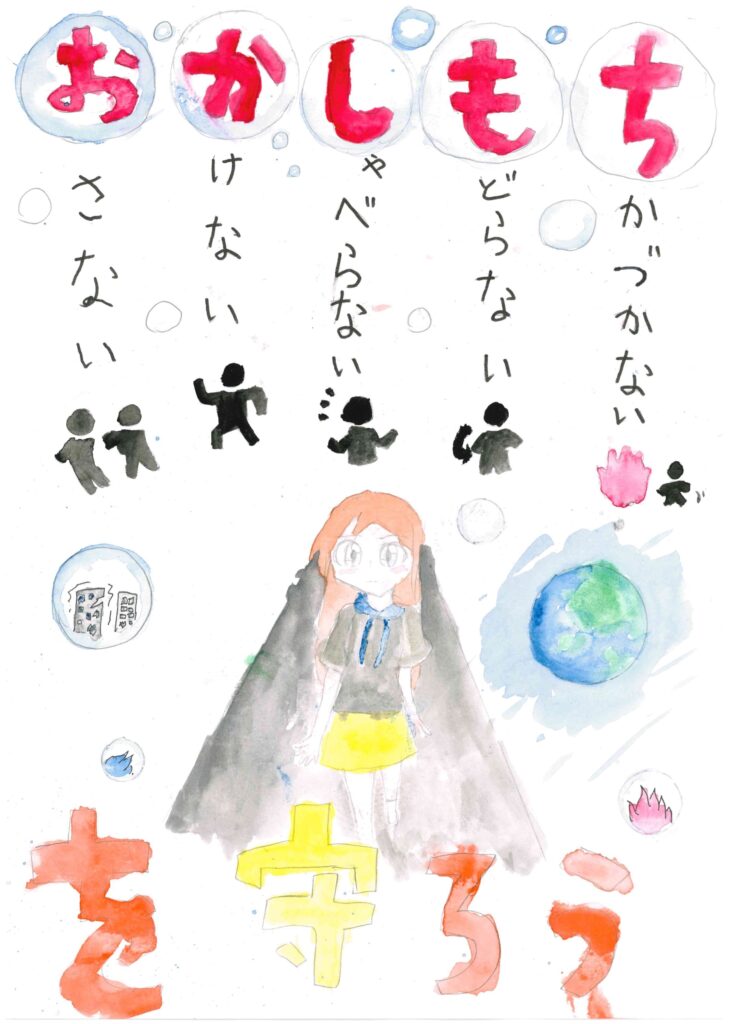 おかしもち
さない
けない
ゃべらない
どらない
かづかない
を守ろう